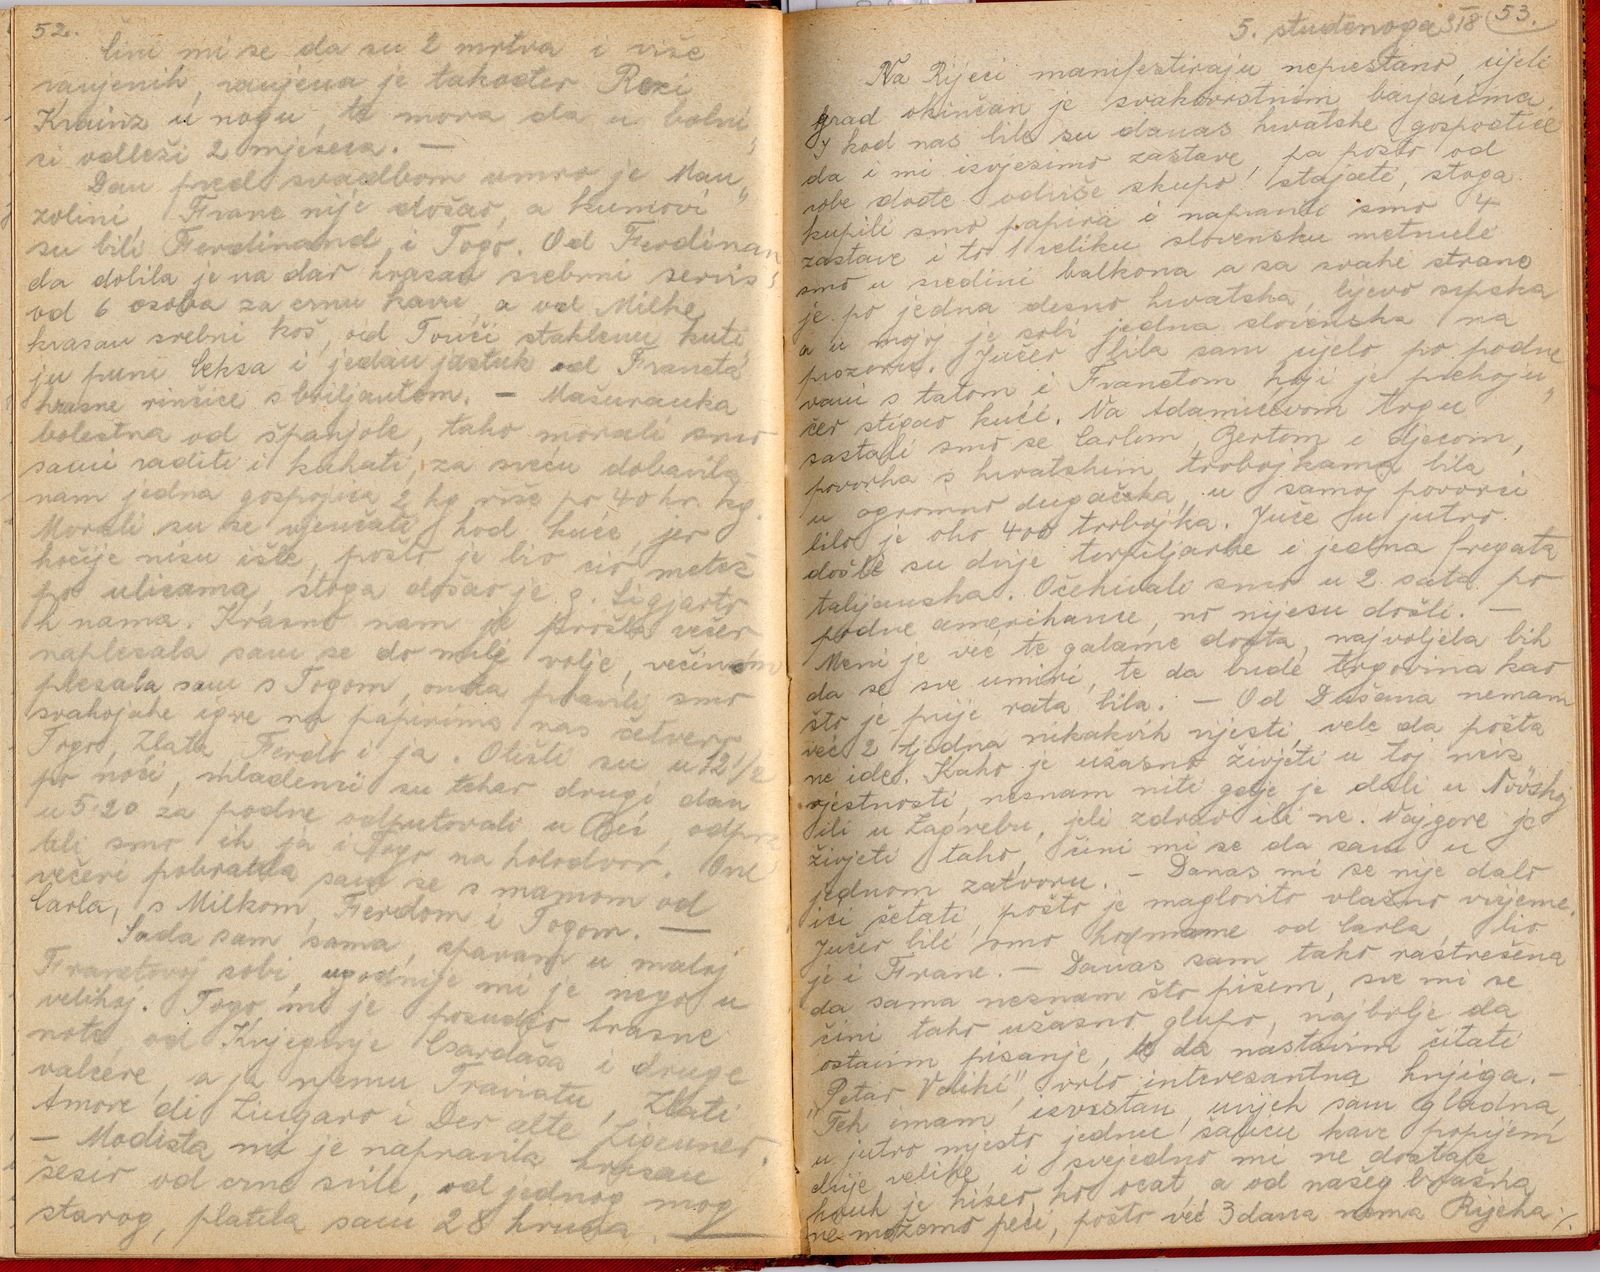 52.
Čini mi se da su 2 mrtva i više
ranjenih, ranjena je također Rezi
Krainz u nogu, te mora da u bolni„
ci odleži 2 mjeseca. —
Dan pred svadbom umro je Mau„
zolini, Frane nije došao, a kumovi
su bili Ferdinand i Togo. Od Ferdinan
da dobila je na dar krasan srebrni servis
od 6 osoba za crnu kavu, a od Milke
krasan srebni koš, od Tonči staklenu kuti
ju punu keksa i jedan jastuk od Franeta
krasne rinčice s briljantom. — Mašuranka
bolestna od španjole, tako morali smo
sami raditi i kuhati, za sreću dobavila
nam jedna gospojica 2 kg riže po 40 kr. kg.
Morali su se vjenčati kod kuće, jer
kočije nisu išle, pošto je bio cio metež
po ulicama, stoga došao je g.
k nama. Krasno nam je prošla večer
naplesala sam se do mile volje, većinom
plesala sam s Togom, onda pravili smo
svakojake igre na papirima nas četvero
Togo, Zlata, Ferdo i ja. Otišli su u 12 1/2
po noći, mladenci su tekar drugi dan
u 5·20 za podne odputovali u Beč, odpra
tili smo ih ja i Togo na kolodvor. One
večeri pobratila sam se s mamom od
Carla, s Milkom, Ferdom i Togom. —
Sada sam sama, spavam u maloj
Franetovoj sobi, ugodnije mi je nego u
velikoj. Togo mi je posudio krasne
note, od Knjeginje Csardaša i druge
valcere, a ja njemu Traviatu, Zlati
Amore di Zingaro i Der alte Zigeuner.
— Modista mi je napravila krasan
šešir od crne svile, od jednog mog
starog, platila sam 28 kruna. —
5. studenoga 918 53.
Na Rijeci manifestiraju neprestano, cijeli
grad okinčan je svakovrstnim barjacima.
I kod nas bile su danas hrvatske gospodiće
da i mi izvjesimo zastave, pa pošto od
robe dođe odviše skupo stajati, stoga
kupili smo papira i napravili smo 4
zastave i to 1 veliku slovensku metnule
smo u sredini balkona a sa svake strane
je po jedna desno hrvatska, ljevo srpska
a u mojoj je sobi jedna slovenska na
prozoru. Jučer bila sam cijelo po podne
vani s tatom i Franetom koji je prekoju„
čer stigao kući. Na Adamićevom trgu
sastali smo se Carlom, Bertom i djecom,
povorka s hrvatskim trobojkama bila
u ogromno dugačka, u samoj povorci
bilo je oko 400 trobojka. Juče u jutro
došle su dvije torpiljarke i jedna fregata
talijanska. Očekivali smo u 2 sata po
podne amerikance, no nijesu došli. —
Meni je već te galame dosta, najvoljela bih
da se sve umiri, te da bude trgovina kao
što je prije rata bila. — Od Dušana nemam
već 2 tjedna nikakvih vjesti, vele da pošta
ne ide. Kako je užasno živjeti u toj neiz
vjestnosti, neznam niti gdje je dali u Novskoj
ili u Zagrebu, jeli zdrav ili ne. Najgore je
živjeti tako, čini mi se da sam u
jednom zatvoru. — Danas mi se nije dalo
ići šetati, pošto je maglovito vlažno vrijeme.
Jučer bili smo kod mame od Carla, bio
je i Frane. — Danas sam tako rastrešena
da sama neznam što pišem, sve mi se
čini tako užasno glupo, najbolje da
ostavim pisanje, te da nastavim čitati
„Petar Veliki", vrlo interesantna knjiga. —
Tek imam izvrstan, uvijek sam gladna,
u jutro mjesto jednu šalicu kave popijem
dvije velike i svejedno mi ne dostaje
kruh je kiseo ko ocat a od našeg brašna
ne možemo peći, pošto već 3 dana nema Rijeka ·/.